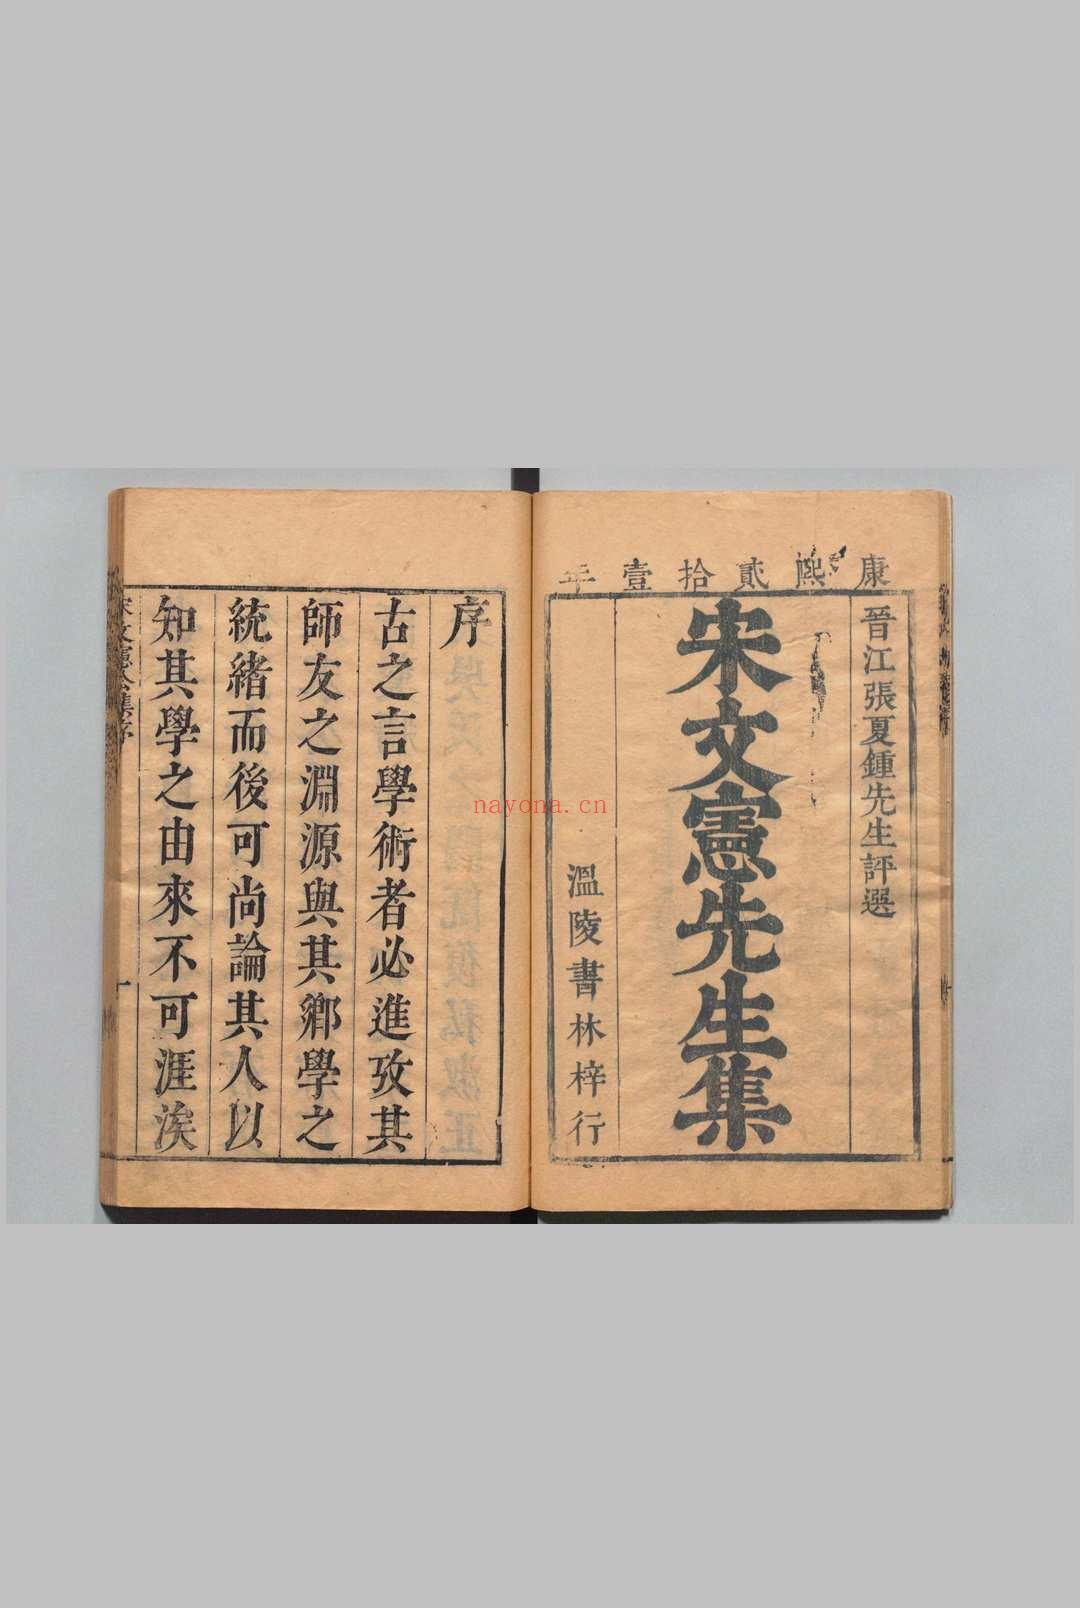 康熙貳拾壹年
晉江張夏鍾先生評選
宋文憲先生集
溫陵書林梓行
序
古之言學術者必進攷其
師友之淵源與其鄉學之
統緒而後可尚論其人以
知其學之由來不可涯涘
宋文憲公集序
一
nayona.cn